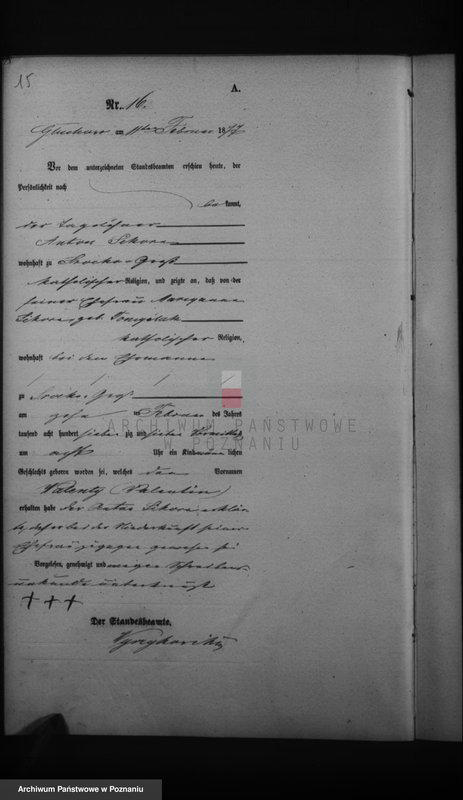 15
A.
Nr. 16.
am 11ten Februar 1877
Vor dem unterzeichneten Standesbeamten erschien heute, der
Persönlichkeit nach
be kannt,
der Tagelöhner
Anton Sekora
wohnhaft zu Srocko Groß
katholischer Religion, und zeigte an, daß von der
seiner Ehefrau
Sekora geb.
katholischer Religion,
wohnhaft bei dem Ehemanne
zu Srocko Groß
am zehn ten Februar des Jahres
tausend acht hundert sieben zig und sieben Vormittags
um acht Uhr ein Kind männ lichen
Geschlechts geboren worden sei, welches den Vornamen
Valenty (Valentin)
erhalten habe der Anton Sekora erklär
te, daß er bei der Niederkunft seiner
Ehefrau zugegen gewesen sei
Vorgelesen, genehmigt und wegen Schreibens-
unkunde unterkreuzt
+++
Der Standesbeamte.
ARCHIWUM PAŃSTWOWE
W POZNANIU
Archiwum Państwowe w Poznaniu